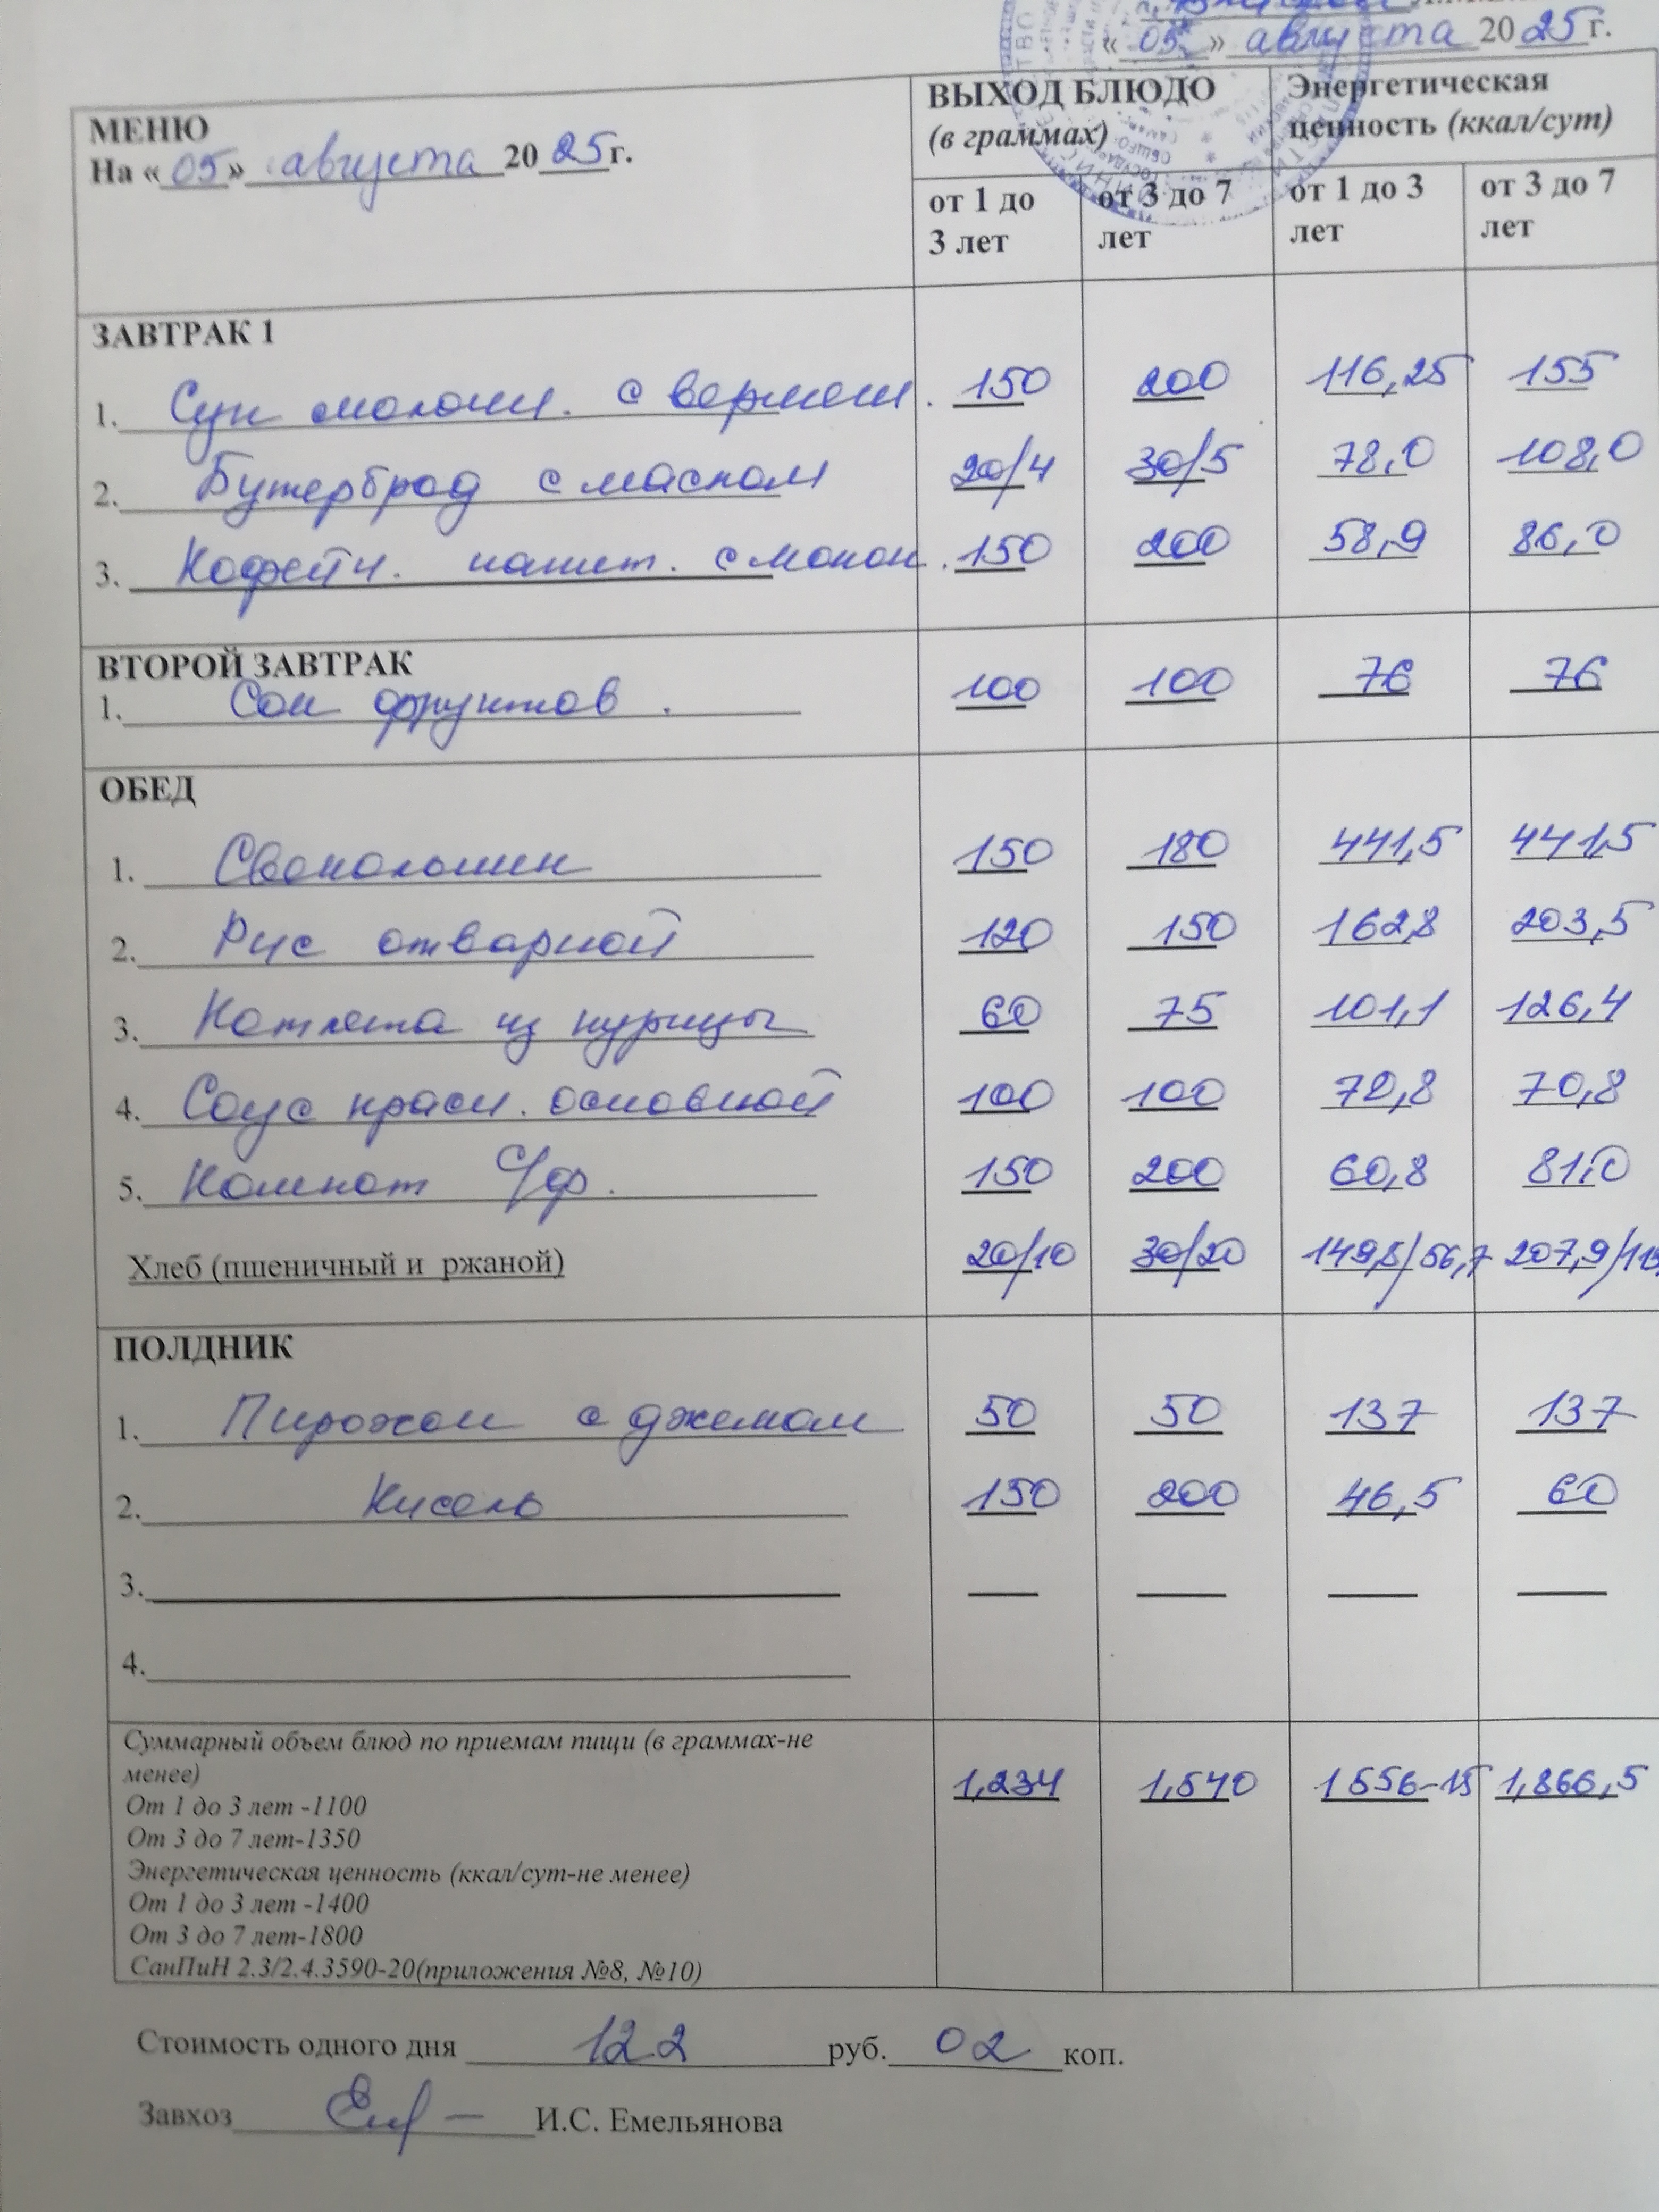 « 05 » августа 2025г.
МЕНЮ
На «05» августа 2025г.
ВЫХОД БЛЮДО
(в граммах)
Энергетическая
ценность (ккал/сут)
от 1 до
3 лет
от 3 до 7
лет
от 1 до 3
лет
от 3 до 7
лет
ЗАВТРАК 1
1. Суп молочн. с вермеш. 150 200 116,25 155
2. Бутерброд с маслом 20/4 30/5 78,0 108,0
3. Кофейн. напит. с молок. 150 200 58,9 86,0
ВТОРОЙ ЗАВТРАК
1. Сок фруктов. 100 100 76 76
ОБЕД
1. Свекольник 150 180 441,5 441,5
2. Рис отварной 120 150 162,8 203,5
3. Котлета из курицы 60 75 101,1 126,4
4. Соус красн. основной 100 100 70,8 70,8
5. Компот с/ф. 150 200 60,8 81,0
Хлеб (пшеничный и ржаной) 20/10 30/20 149,8/56,7 207,9/
ПОЛДНИК
1. Пирожок с джемом 50 50 137 137
2. Кисель 150 200 46,5 60
3.
4.
Суммарный объем блюд по приемам пищи (в граммах-не
менее)
От 1 до 3 лет -1100
От 3 до 7 лет-1350
Энергетическая ценность (ккал/сут-не менее)
От 1 до 3 лет -1400
От 3 до 7 лет-1800
СанПиН 2.3/2.4.3590-20(приложения №8, №10)
1,234 1,540 1556-15 1,866,5
Стоимость одного дня 122 руб. 02 коп.
Завхоз И.С. Емельянова